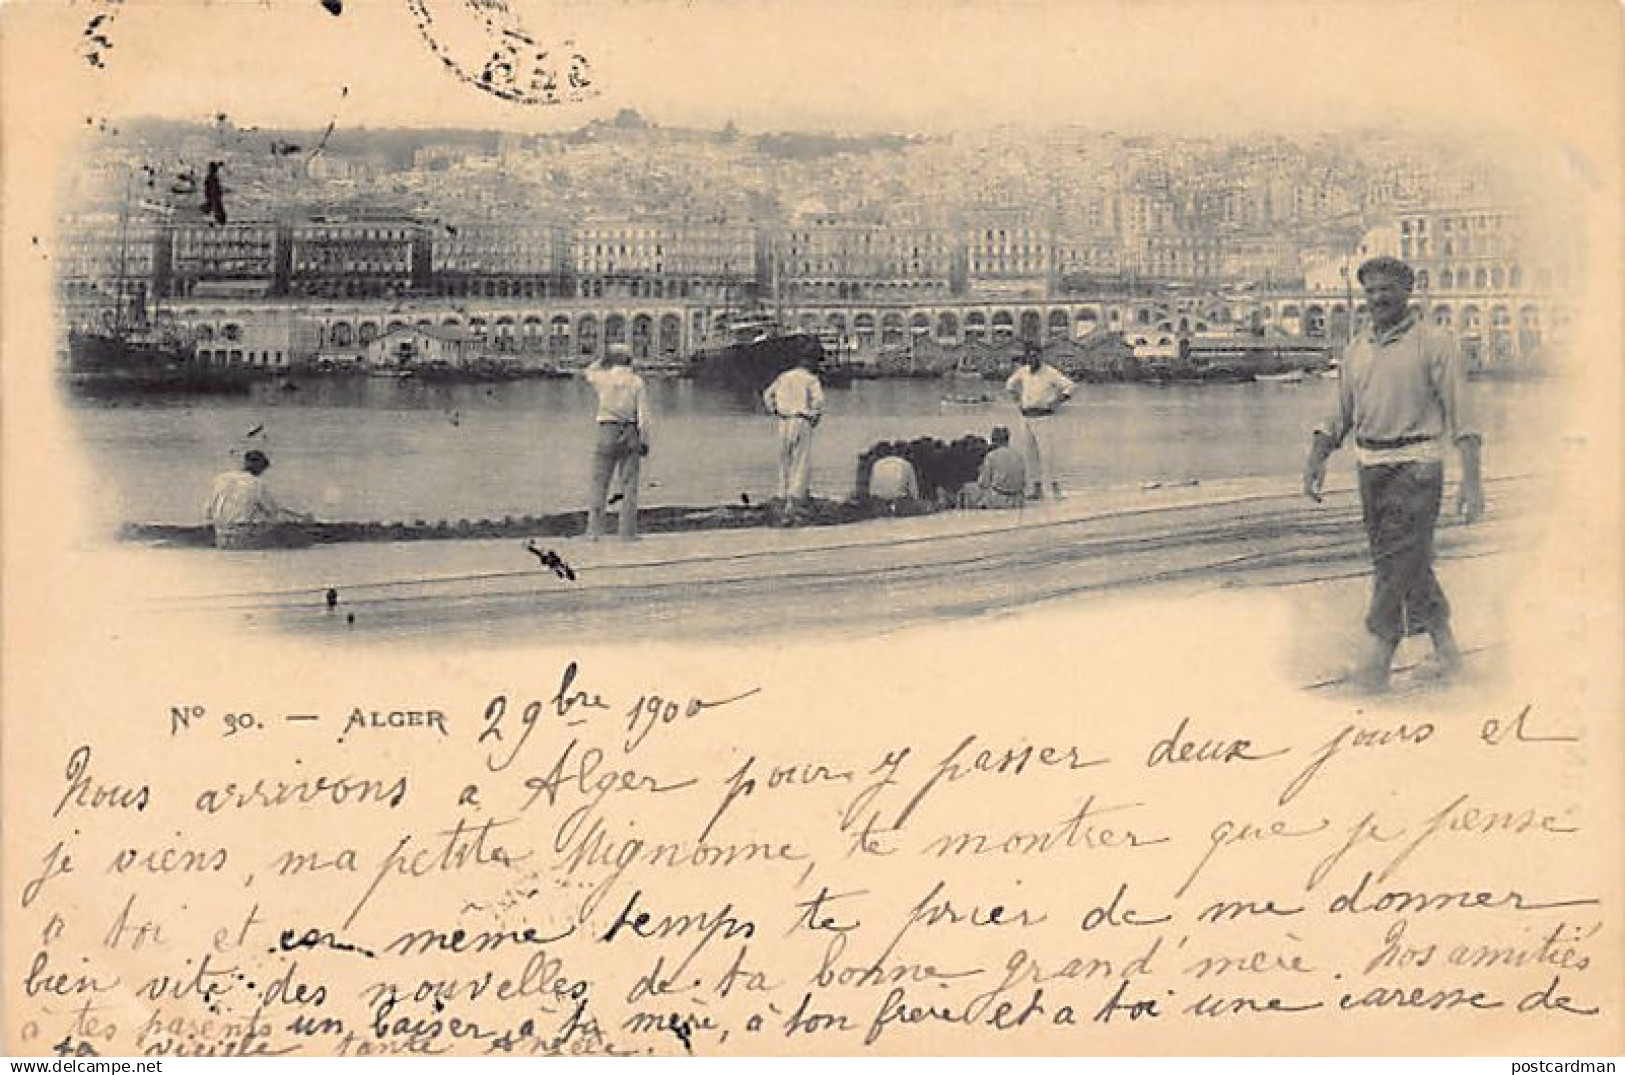 Nº 30. — ALGER 2 9bre 1900
Nous arrivons a Alger pour y passer deux jours et
je viens, ma petite Mignonne, te montrer que je pense
a toi et en même temps te prier de me donner
bien vite des nouvelles de ta bonne grand'mère. Nos amitiés
à tes parents un baiser à ta mère, à ton frère et a toi une caresse de
ta vieille tante
postcardman